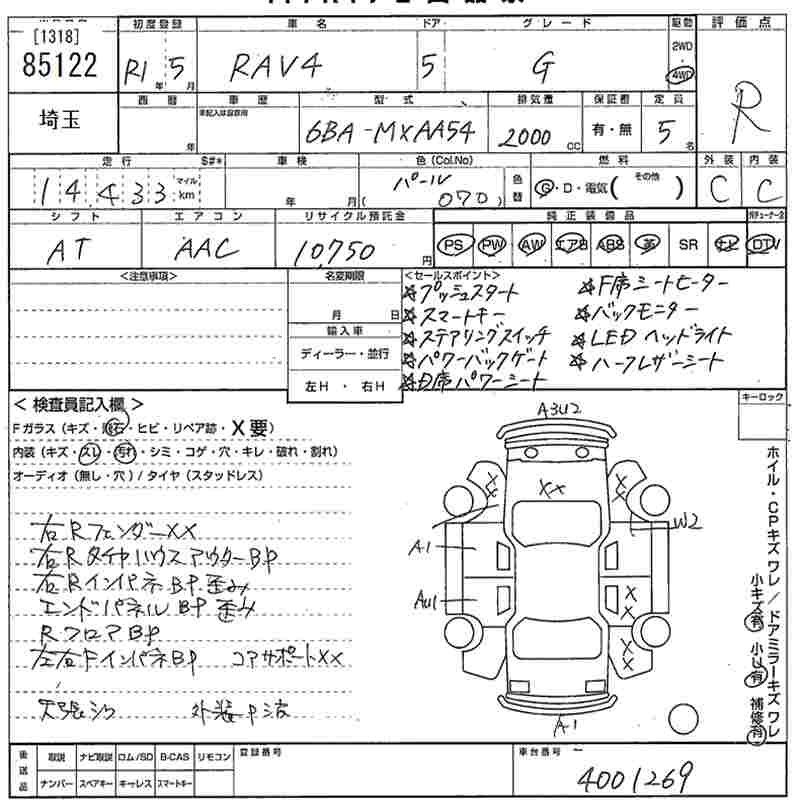 [1318]
85122
埼玉
初度登録 車名 ドア グレード 駆動 評価点
R1年 5月 RAV4 5 G 2WD 4WD R
西暦 車歴 型式 排気量 保証書 定員
年 未記入は自家用 6BA-MXAA54 2000cc 有・無 5名
走行 $#* 車検 色(Col.No) 燃料 外装 内装
14433 マイル km 年 月 パール (070) 色替 G・D・電気( その他 ) C C
シフト エアコン リサイクル預託金 純正装備品
AT AAC 10,750円 PS PW AW エアB ABS 革 SR ナビ DTV
<注意事項> 名変期限 <セールスポイント>
月 日
輸入車
ディーラー・並行
左H ・ 右H
☆プッシュスタート ☆F席シートヒーター
☆スマートキー ☆バックモニター
☆ステアリングスイッチ ☆LED ヘッドライト
☆パワーバックゲート ☆ハーフレザーシート
☆D席パワーシート
<検査員記入欄> キーロック
Fガラス(キズ・飛石・ヒビ・リペア跡・X要)
内装(キズ・スレ・汚れ・シミ・コゲ・穴・キレ・破れ・割れ)
オーディオ(無し・穴)/タイヤ(スタッドレス)
右Rフェンダー××
右RタイヤハウスアウターBP
右RインパネBP歪み
エンドパネルBP歪み
RフロアBP
左右FインパネBP コアサポート××
天張シワ
A3U2
××
××
××
W2
A1
××
××
A1
ホイル・CPキズワレ/ドアミラーキズワレ
小キズ有 小U有 補修有
後送品 取説 ナビ取説 ロム/SD B-CAS リモコン 登録番号 車台番号
ナンバー スペアキー キーレス スマートキー 4001269